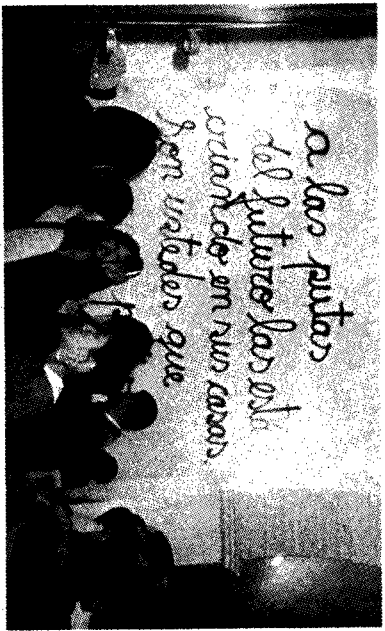 a las putas
del futuro las está
criando en sus casas.
Son ustedes que